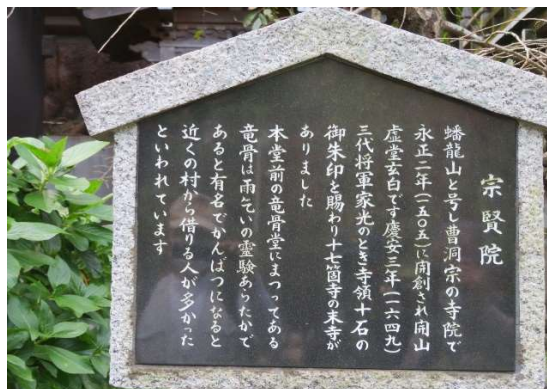 宗賢院
蟠龍山と号し曹洞宗の寺院で
永正二年(一五〇五)に開創され開山
虚堂玄白です慶安二年(一六四九)
三代将軍家光のとき寺領十石の
御朱印を賜わり十七箇寺の末寺が
ありました
本堂前の竜骨堂にまつってある
竜骨は雨乞いの霊験あらたかで
あると有名でかんばつになると
近くの村から借りる人が多かった
といわれています